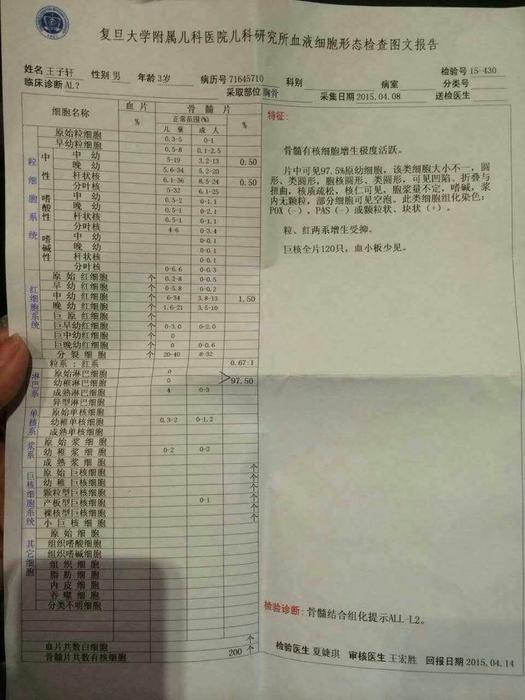 复旦大学附属儿科医院儿科研究所血液细胞形态检查图文报告
姓名 王子轩 性别 男 年龄 3岁 病历号 71645710 科别 病室 检验号 15-430
分类号
临床诊断 AL? 采取部位 胸骨 采集日期 2015.04.08 送检医生
细胞名称 血片 骨髓片
% 正常范围(%) %
儿童 成人
粒细胞系统
原始粒细胞 0.3-5 0-1
早幼粒细胞 0.5-8 0.1-2.5
中性 中幼 5-19 3.2-13 0.50
晚幼 5.6-34 5.2-20
杆状核 6.1-36 8.5-24 0.50
分叶核 5-32 6.1-25
嗜酸性 中幼 0.5-3 0-1.1
晚幼 0.5-1 0-2.1
杆状核 0.5-1 0-1.1
分叶核 4-6 0-3.4
嗜碱性 中幼 0-0.4
晚幼 0-0.1
杆状核 0-0.1
分叶核 0-0.3
红细胞系统
原始红细胞 个 0.2-8 0-0.5
早幼红细胞 个 0-5.8 0-0.2
中幼红细胞 个 6-34 3.8-13 1.50
晚幼红细胞 个 1.6-21 3.5-10
巨原红细胞 个
巨早幼红细胞 个 0-3.0 0-2.0
巨中幼红细胞 个
巨晚幼红细胞 个 0 0-0.6
分裂细胞 个 20-40 8-32
粒系：红系 0.67:1
淋巴系
原始淋巴细胞 0
幼稚淋巴细胞 0 97.50
成熟淋巴细胞 4 0-3
异型淋巴细胞
单核系
原始单核细胞
幼稚单核细胞 0.3-2 0-1.2
成熟单核细胞
浆系
原始浆细胞
幼稚浆细胞 0-2 0-2
成熟浆细胞
巨核细胞系统
原始巨核细胞 个
幼稚巨核细胞 个
颗粒型巨核细胞 个
产板型巨核细胞 0-1 个
裸核型巨核细胞 个
小巨核细胞
其它细胞
原始细胞
组织嗜酸细胞
组织嗜碱细胞
组织细胞
脂肪细胞
内皮细胞
吞噬细胞
分类不明细胞
血片共数白细胞 个
骨髓片共数有核细胞 200 个
特征:
骨髓有核细胞增生极度活跃。
片中可见97.5%原幼细胞，该类细胞大小不一，圆
形、类圆形，胞核圆形、类圆形，可见凹陷、折叠与
扭曲，核质疏松，核仁可见，胞浆量不定，嗜碱，浆
内无颗粒，部分细胞可见空泡。此类细胞组化染色：
POX（-），PAS（-）或颗粒状、块状（+）。
粒、红两系增生受抑。
巨核全片120只，血小板少见。
检验诊断: 骨髓结合组化提示ALL-L2。
检验医生 夏婕琪 审核医生 王宏胜 回报日期 2015.04.14